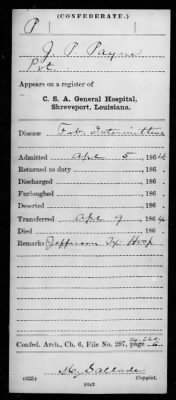 (CONFEDERATE.)
P
J. P. Payne
Pvt
Appears on a register of
C. S. A. General Hospital,
Shreveport, Louisiana.
Disease Feb. Intermittens
Admitted Apl 5, 1864
Returned to duty , 186
Discharged , 186
Furloughed , 186
Deserted , 186
Transferred Apl 9, 1864
Died , 186
Remarks: Jefferson Tx Hosp
Confed. Arch., Ch. 6, File No. 297, page
(635)
Copyist.